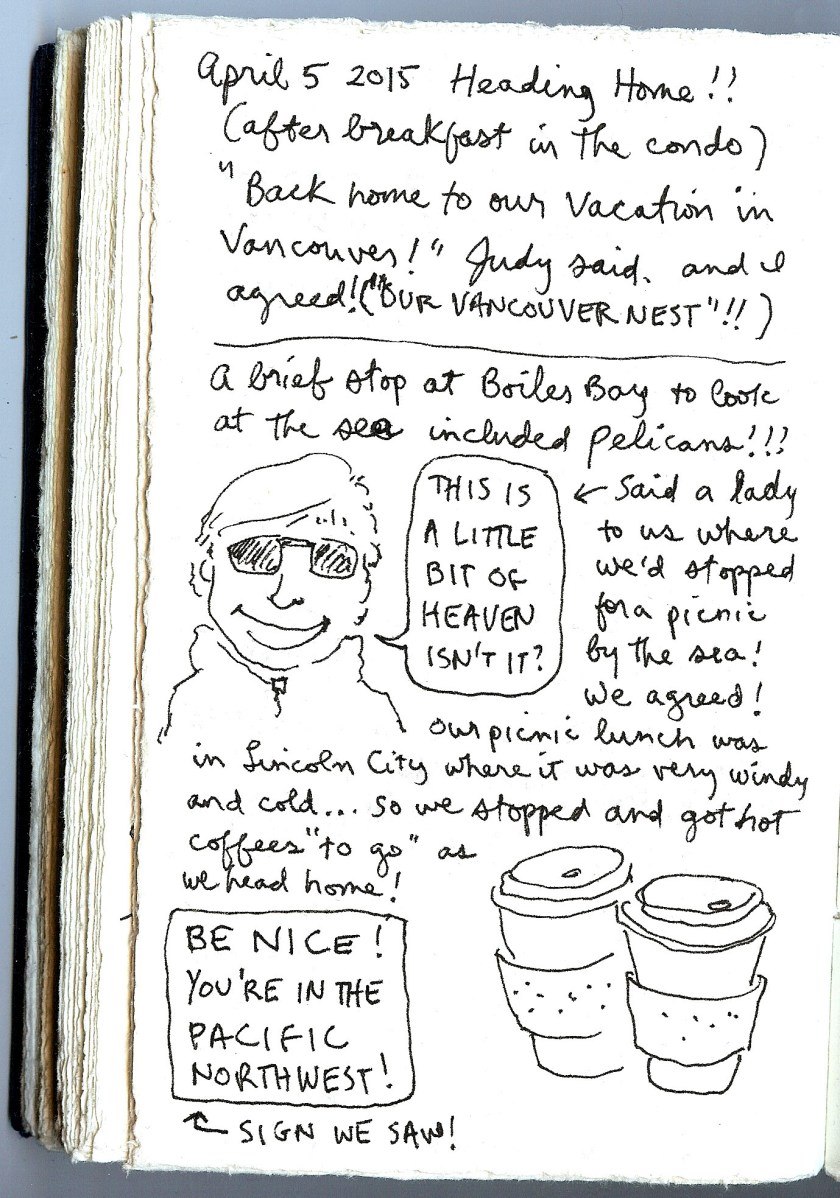 April 5 2015 Heading Home!!
(after breakfast in the condo)
"Back home to our vacation in
Vancouver!" Judy said, and I
agreed! ("OUR VANCOUVER NEST"!!)
A brief stop at Boiler Bay to look
at the sea included pelicans!!!
THIS IS
A LITTLE
BIT OF
HEAVEN
ISN'T IT?
← Said a lady
to us where
we'd stopped
for a picnic
by the sea!
We agreed!
Our picnic lunch was
in Lincoln City where it was very windy
and cold... so we stopped and got hot
coffees "to go" as
we head home!
BE NICE!
YOU'RE IN THE
PACIFIC
NORTHWEST!
← SIGN WE SAW!